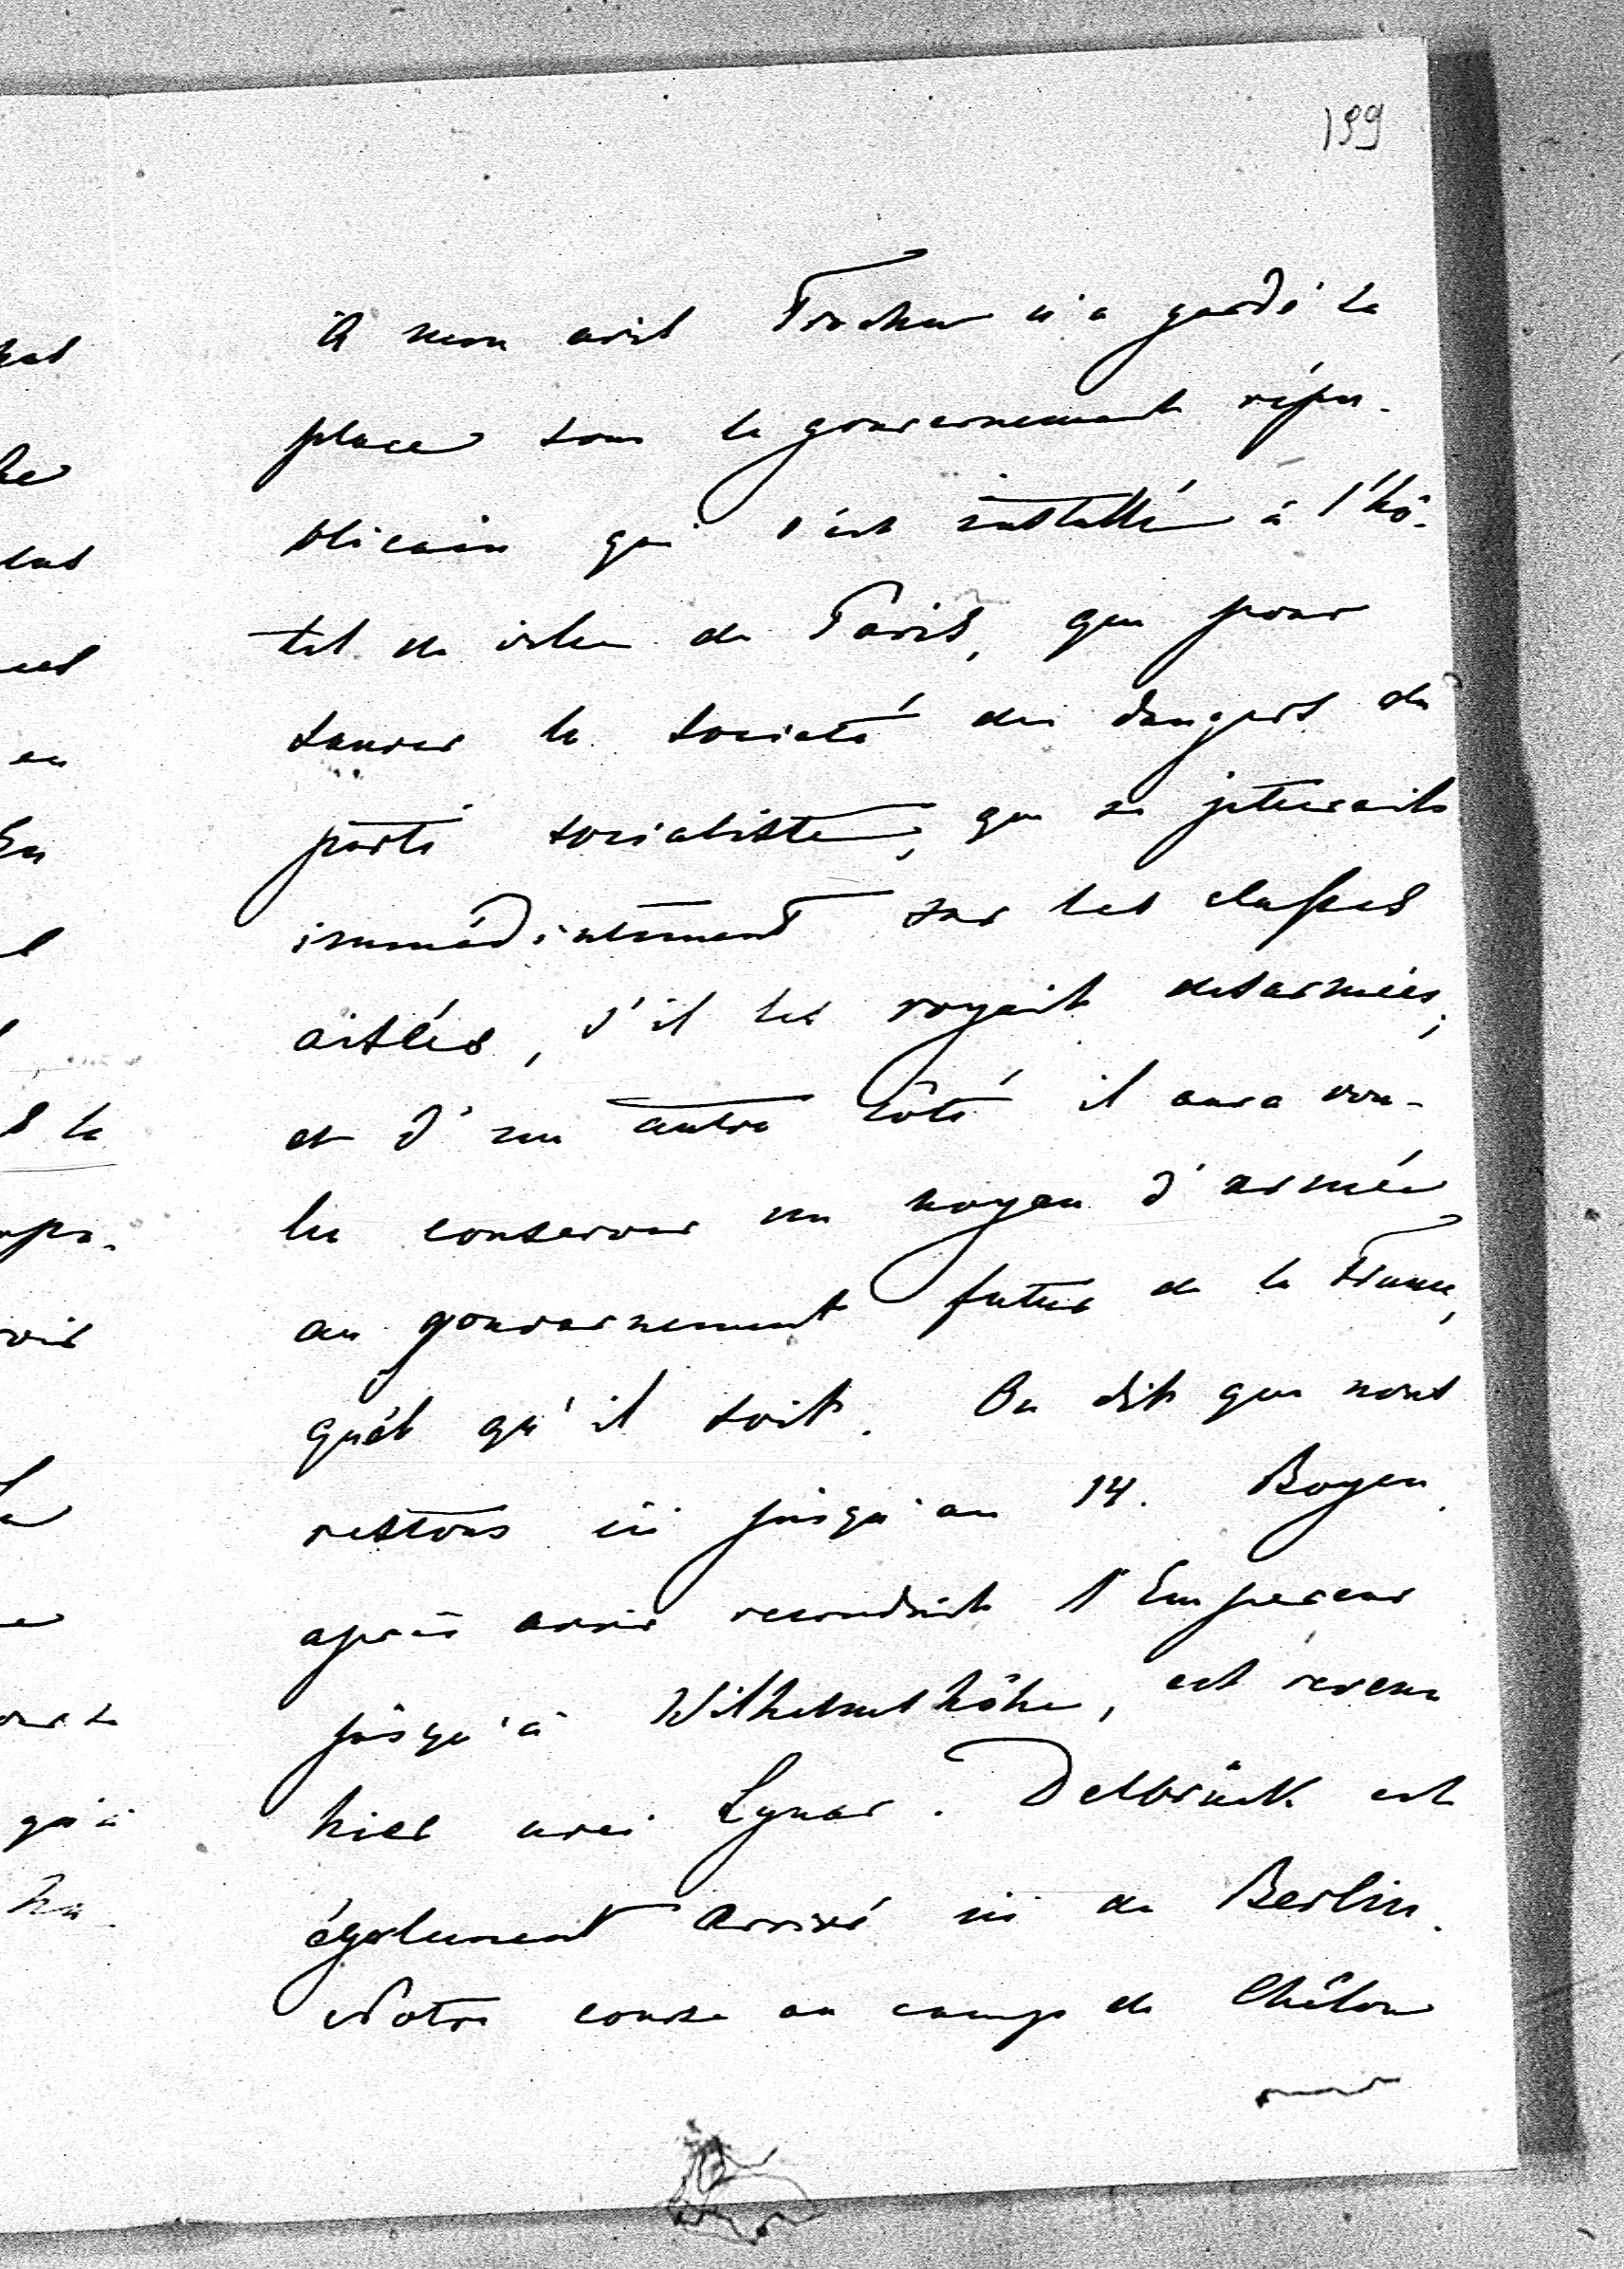 199
A mon avis Trochu n'a gardé sa
place sous le gouvernement répu-
blicain qui s'est installé à l'hô-
tel de ville de Paris, que pour
sauver la société des dangers du
parti socialiste, qui se jetterait
immédiatement sur les classes
aisées, s'il les voyait desarmées;
et d'un autre côté il aura vou-
lu conserver un noyau d'armée
au gouvernement futur de la France,
quel qu'il soit. On dit que nous
restons ici jusqu'au 14. Boyen
après avoir reconduit l'Empereur
jusqu'à Wilhelmshöhe, est revenu
hier avec Lynar. Delbrück est
également arrivé ici de Berlin.
Notre course au camp de Châlon